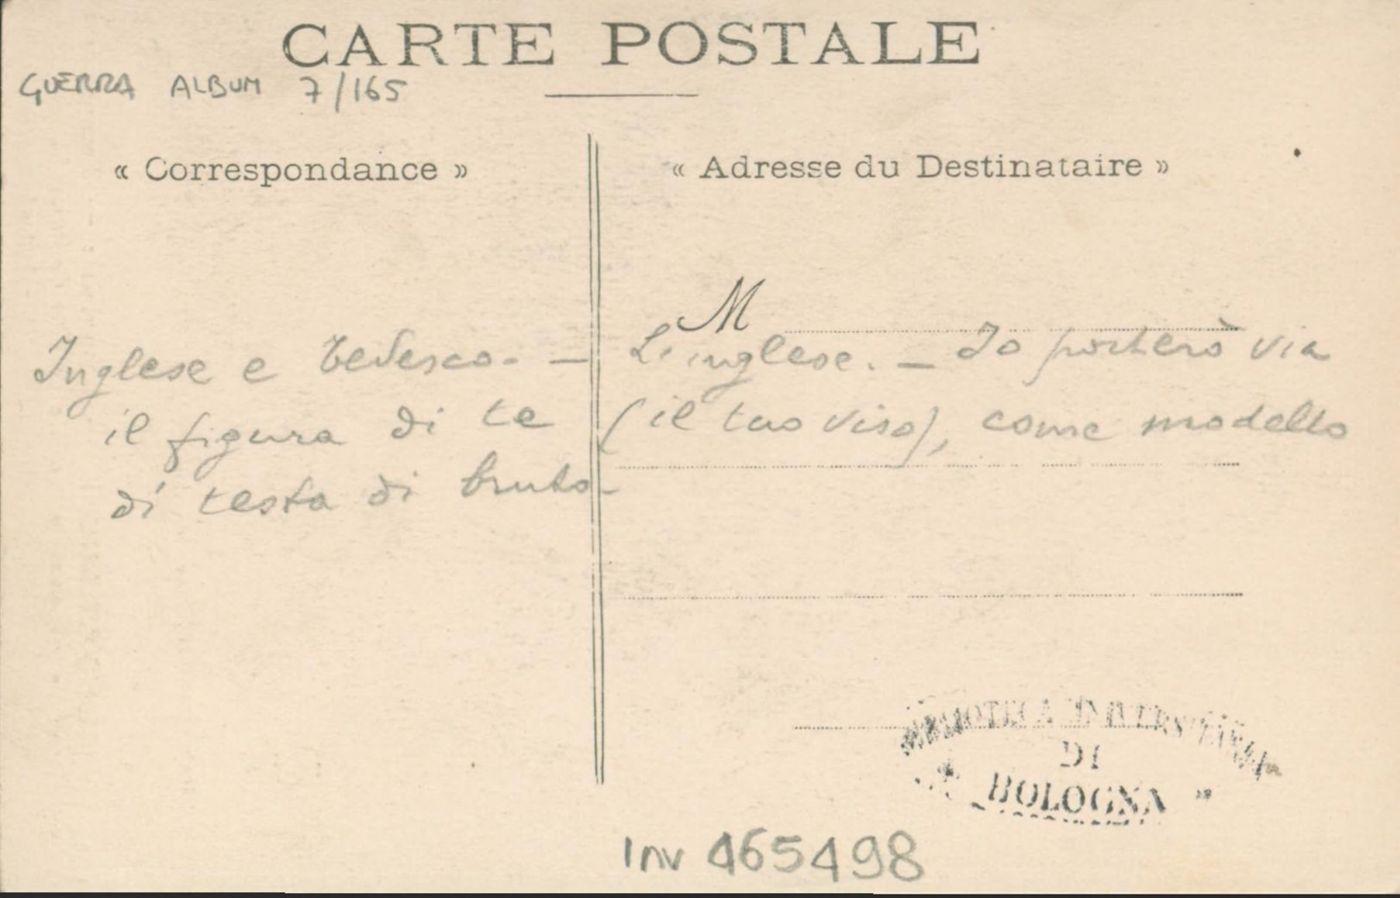 CARTE POSTALE
GUERRA ALBUM 7/165
« Correspondance »
« Adresse du Destinataire »
M
Inglese e tedesco. — L'inglese. — Io porterò via
il figura di te (il tuo viso), come modello
di testa di bruto.
BIBLIOTECA UNIVERSITARIA
DI
BOLOGNA
Inv 465498